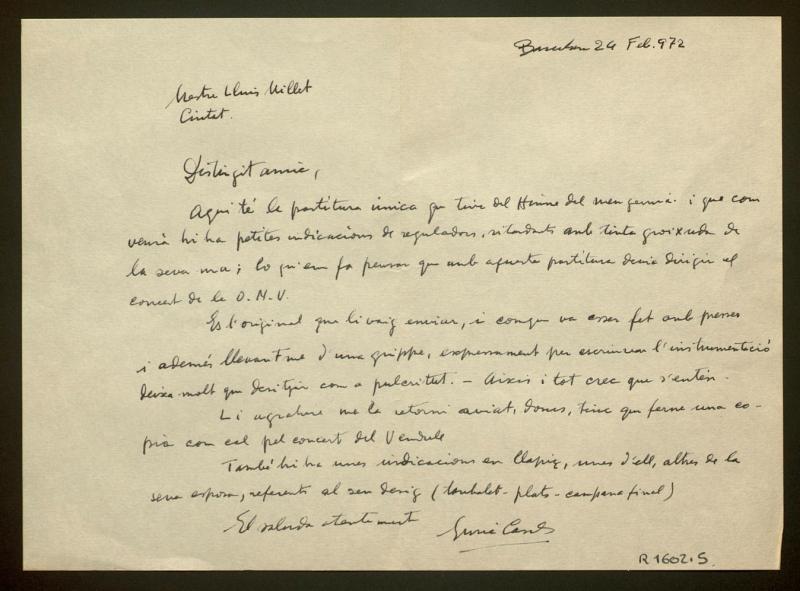 Barcelona 24 Feb. 972
Mestre Lluis Millet
Ciutat.
Distingit amic,
Aqui té la partitura única que tinc del Himne del meu germà i que com
veurà hi ha petites indicacions de reguladors, ritardants amb tinta groixuda de
la seva ma; lo qu'em fa pensar que amb aquesta partitura devia dirigir el
concert de la O.N.V.
Es l'original que li vaig enviar, i com que va esser fet amb presses
i además llevantme d'una grippe, expressament per escriurem l'instrumentació
deixa molt que desitjar com a pulcritut. – Aixís i tot crec que s'entén.
Li agrahire me la retorni aviat, doncs, tinc que ferne una co-
pia com cal pel concert del Vendrell
També hi ha unes indicacions en llapiç, unes d'ell, altres de la
seva esposa, referents al seu desig (timbalet - plats - campana final)
El saluda atentament
Enric Casals
R 1602.5